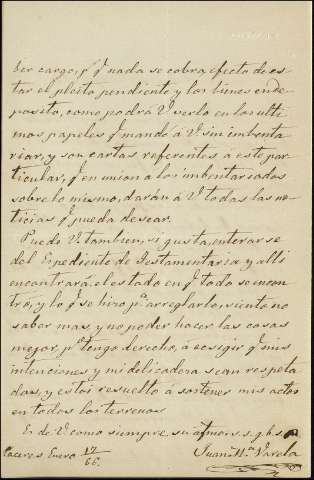 ber cargo, p.r q.e nada se cobra efecto de es-
tar el pleito pendiente y los bienes en de-
posito, como podrá V. verlo en los ulti-
mos papeles q.e mando á V. sin imbenta-
riar, y son cartas referentes á este par-
ticular, q.e en union a los imbentariados
sobre lo mismo, darán á V. todas las no-
ticias q.e pueda desear.
Puede V. tambien, si gusta, enterarse
del Espediente de Testamentaria y alli
encontrará el estado en q.e todo se encon-
tró, y lo q.e se hizo p.a arreglarlo, siento no
saber mas, y no poder hacer las cosas
mejor, p.o tengo derecho, á ecsigir q.e mis
intenciones y mi delicadeza sean respeta-
das, y estoy resuelto á sostener mis actos
en todos los terrenos
Es de V. como siempre su afmo. s. s. q. b. s. m.
Caceres, Enero 17/66.
Juan M.a Varela